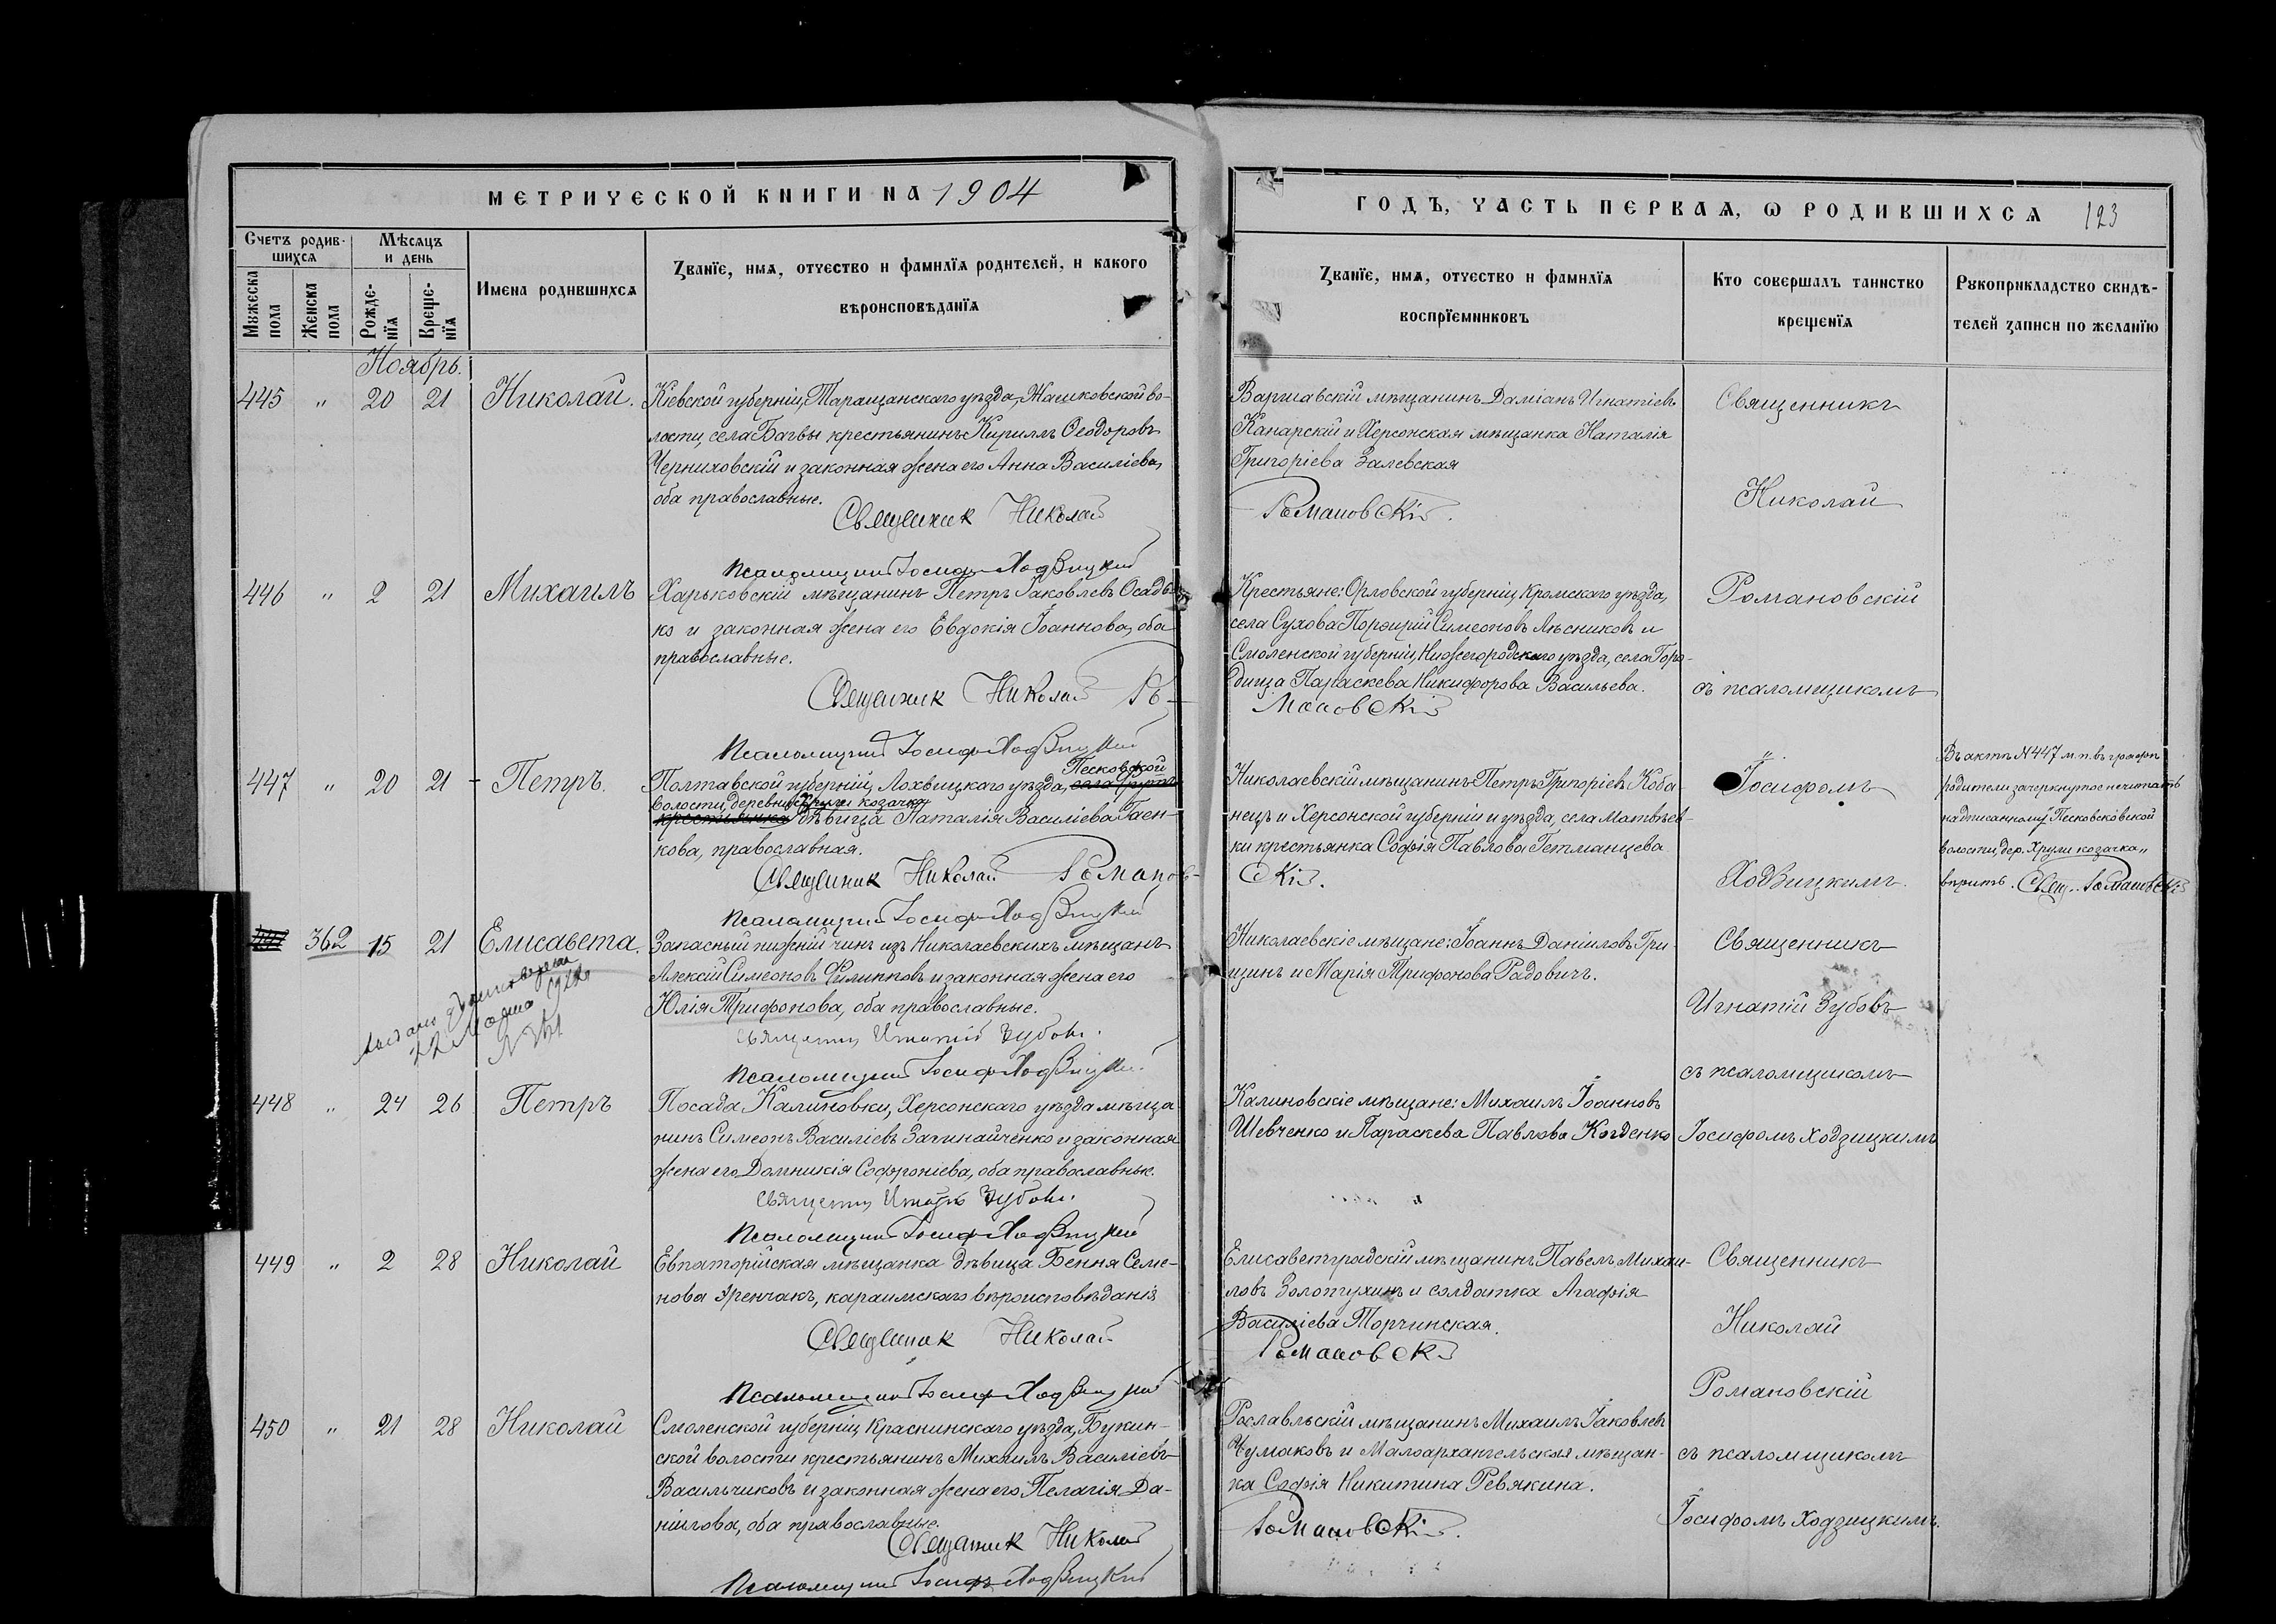 МЕТРИЧЕСКОЙ КНИГИ НА 1904
ГОДЪ, ЧАСТЬ ПЕРВАЯ, Ѡ РОДИВШИХСЯ 123
Счетъ родив-
шихся
Мѣсяцъ
и день
Мужеска пола
Женска пола
Рожде-
нїя
Креще-
нїя
Имена родившихся
Званїе, имя, отчество и фамилїя родителей, и какого
вѣроисповѣданїя
Званїе, имя, отчество и фамилїя
воспрїемниковъ
Кто совершалъ таинство
крещенїя
Рукоприкладство свидѣ-
телей записи по желанїю
Ноябрь.
445 " 20 21 Николай.
Кіевской губерніи, Таращанскаго уѣзда, Жашковской во-
лости, села Багвы крестьянинъ Кириллъ Ѳеодоровъ
Черниховскій и законная жена его Анна Василіева,
оба православные.
Священник Николай
Псаломщикъ Іосифъ Ходзицкий
Варшавскій мѣщанинъ Даміанъ Игнатіевъ
Канарскій и Херсонская мѣщанка Наталія
Григоріева Залевская
Романовскій.
Священникъ
Николай
446 " 2 21 Михаилъ
Харьковскій мѣщанинъ Петръ Іаковлевъ Осадь
ко и законная жена его Евдокія Іоаннова, оба
православные.
Священник Николай Ро-
Псаломщикъ Іосифъ Ходзицкий
Крестьяне: Орловской губерніи, Кромскаго уѣзда,
села Сухова Порфирій Симеоновъ Лѣсниковъ и
Смоленской губерніи, Нижегородскаго уѣзда, села Горо-
дища Параскева Никифорова Васильева.
мановскій
Романовскій
съ псаломщикомъ
447 " 20 21 Петръ.
Песковской
Полтавской губерніи, Лохвицкаго уѣзда,
волости, деревни Хрули козачка
крестьянка дѣвица Наталія Василіева Гаен-
кова, православная.
Священик Николай Романов-
Псаломщикъ Іосифъ Ходзицкий
Николаевскій мѣщанинъ Петръ Григоріевъ Коба-
нецъ и Херсонской губерніи и уѣзда, села Матвѣев-
ки крестьянка Софія Павлова Гетманцева
скій.
Іосифомъ
Ходзицкимъ.
Въ актѣ N 447 м.п. въ графѣ
родители зачеркнутое не читать
надписанному „Песковсковской
волости, дер. Хрули козачка„
вѣрить. Свящ. Романовскій
362 15 21 Елисавета.
22 Марта
Запасный нижній чинъ изъ Николаевскихъ мѣщанъ
Алексій Симеоновъ Филипповъ и законная жена его
Юлія Трифонова, оба православные.
Священникъ Игнатій Зубовъ.
Псаломщикъ Іосифъ Ходзицкий
Николаевскіе мѣщане: Іоаннъ Даніиловъ Гри-
щинъ и Марія Трифонова Радовичъ.
Священникъ
Игнатій Зубовъ
съ псаломщикомъ
448 " 24 26 Петръ
Посада Калиновки, Херсонскаго уѣзда мѣща-
нинъ Симеонъ Василіевъ Загинайченко и законная
жена его Домникія Софроніева, оба православные.
Священникъ Игнатій Зубовъ.
Псаломщикъ Іосифъ Ходзицкий
Калиновскіе мѣщане: Михаилъ Іоанновъ
Шевченко и Параскева Павлова Когденко
Іосифомъ Ходзицкимъ
449 " 2 28 Николай
Евпаторійская мѣщанка дѣвица Бення Семе-
нова Эренчакъ, караимскаго вѣроисповѣданія
Священик Николай
Псаломщикъ Іосифъ Ходзицкий
Елисаветградскій мѣщанинъ Павелъ Михаи-
ловъ Золотухинъ и солдатка Агафія
Василіева Торчинская.
Романовскій
Священникъ
Николай
Романовскій
450 " 21 28 Николай
Смоленской губерніи, Краснинскаго уѣзда, Букин-
ской волости крестьянинъ Михаилъ Василіевъ
Васильчиковъ и законная жена его Пелагія Да-
ніилова, оба православные.
Священик Николай
Псаломщикъ Іосифъ Ходзицкий
Рославльскій мѣщанинъ Михаилъ Іаковлевъ
Чумаковъ и Малоархангельская мѣщан-
ка Софія Никитина Ревякина.
Романовскій.
съ псаломщикомъ
Іосифомъ Ходзицкимъ.